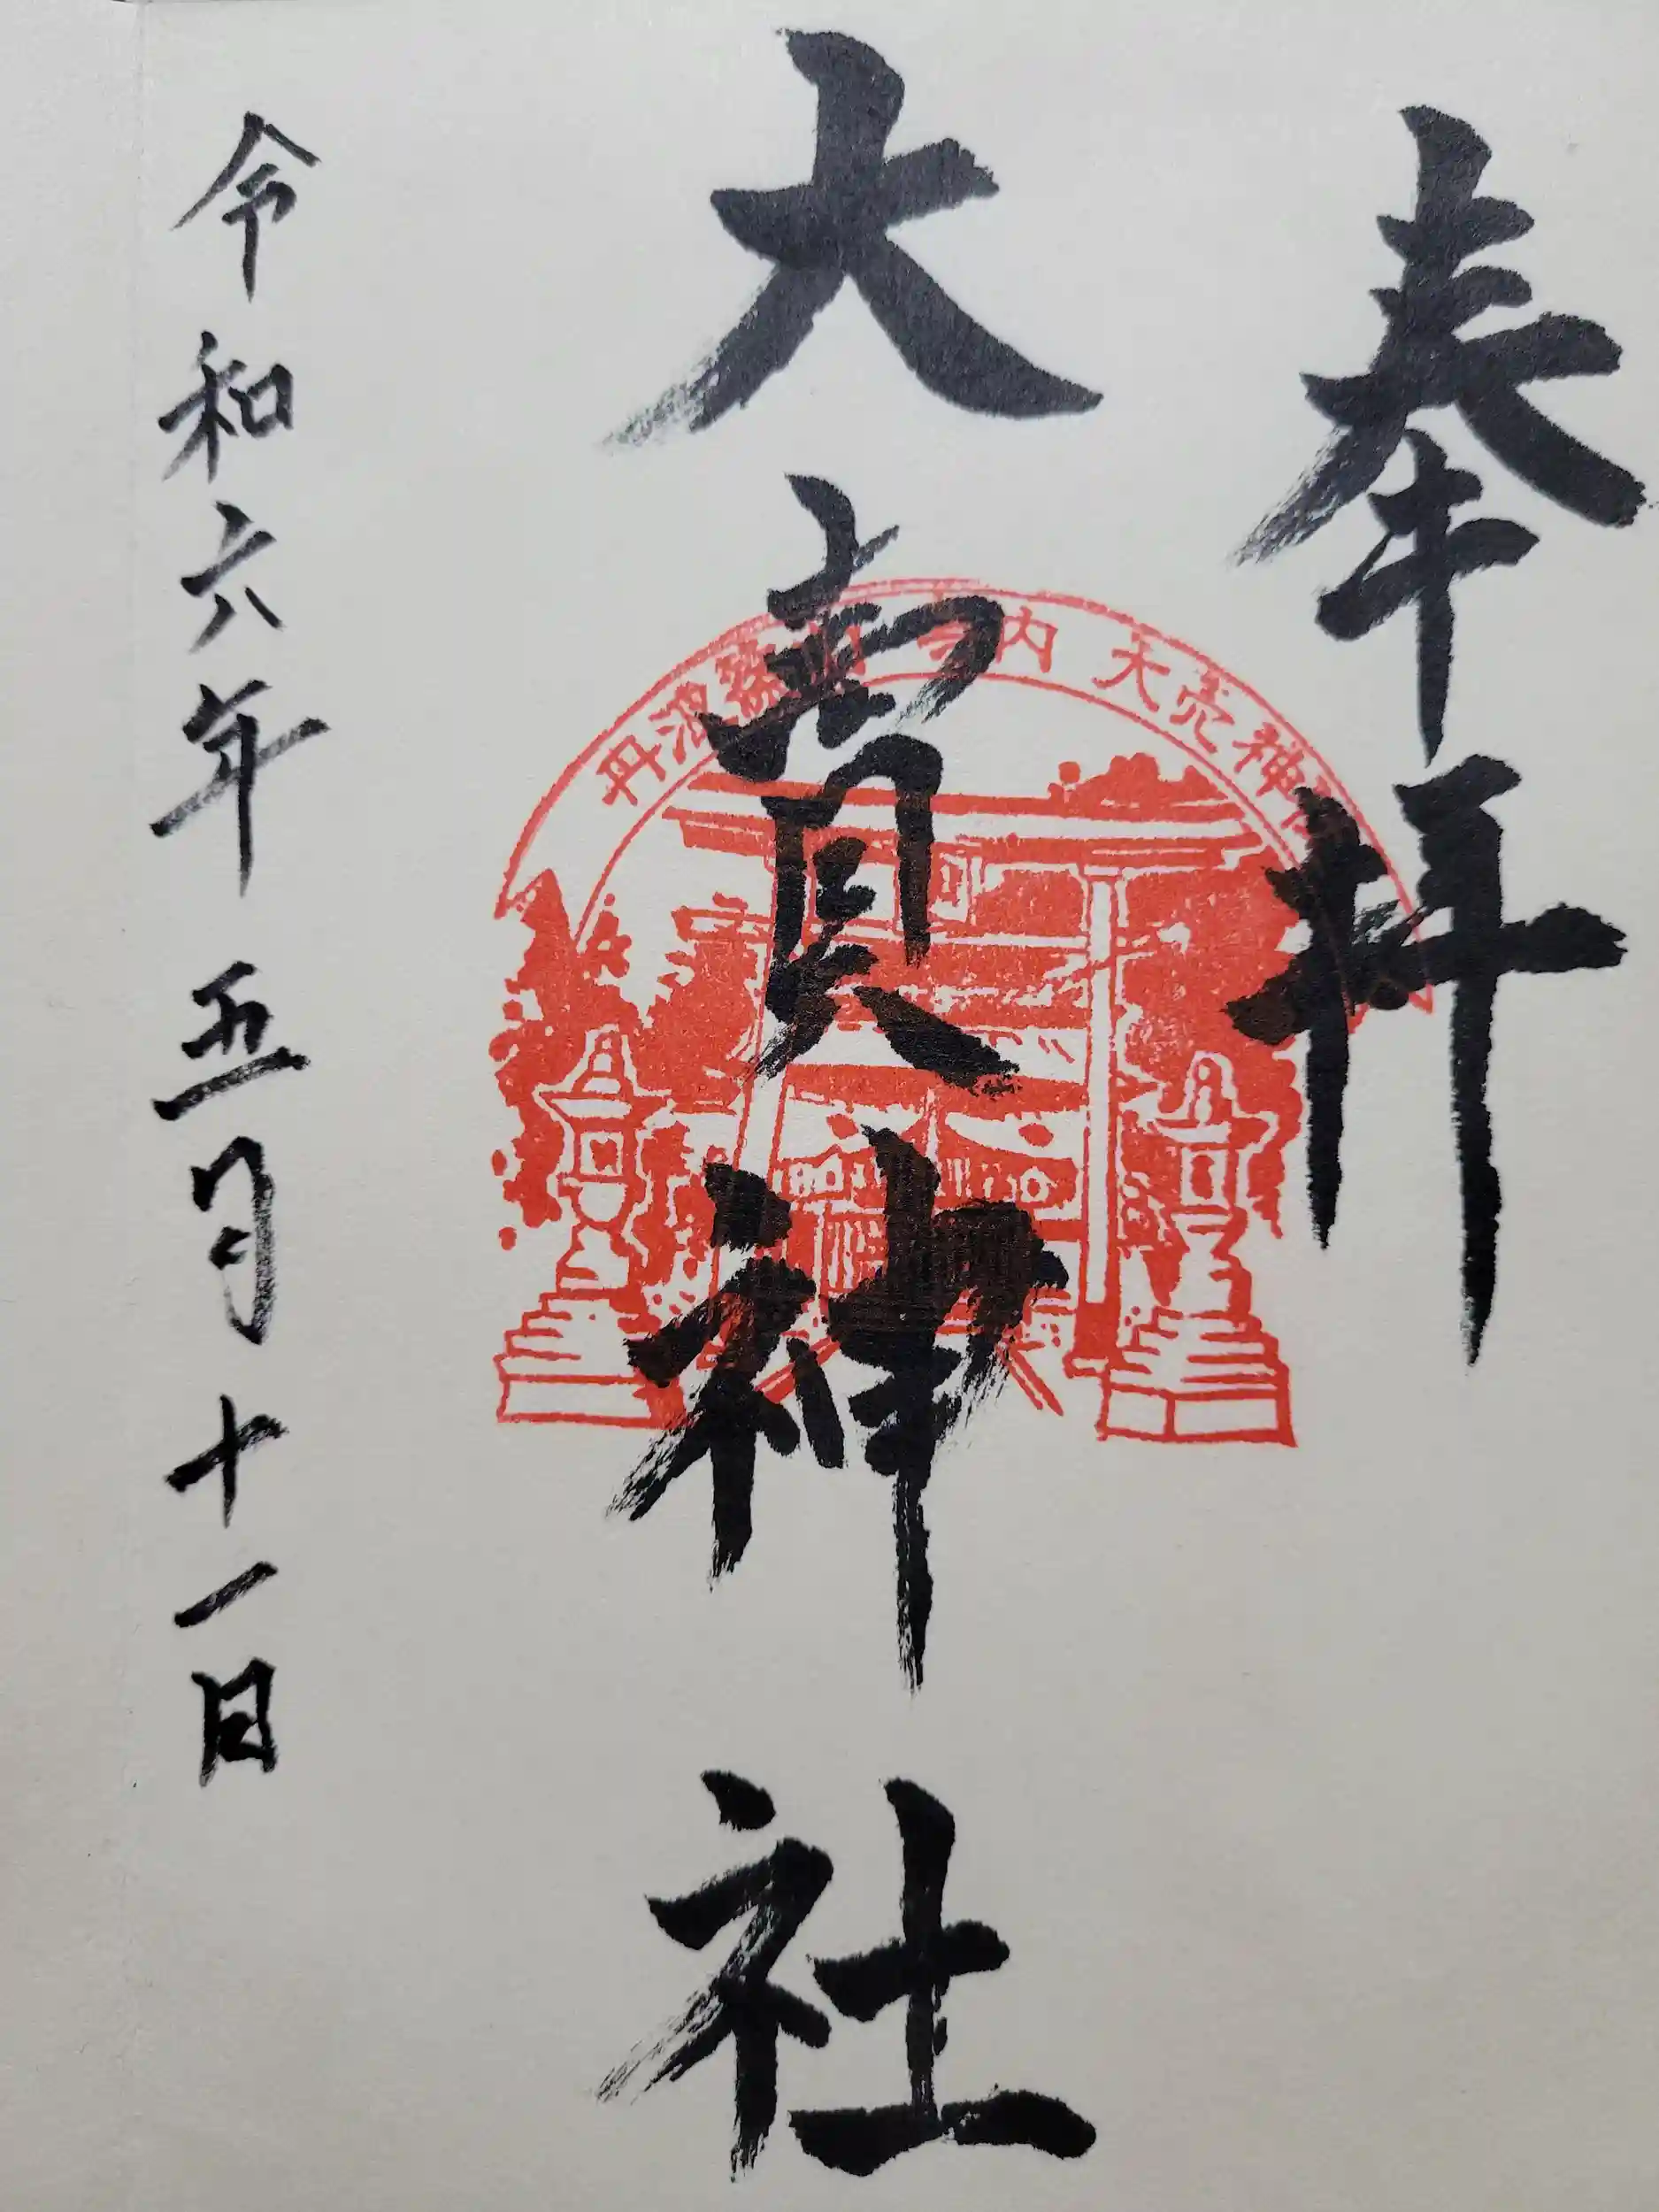 奉拝
大賣神社
丹波篠山 寺内 大売神社
令和六年 五月 十一日